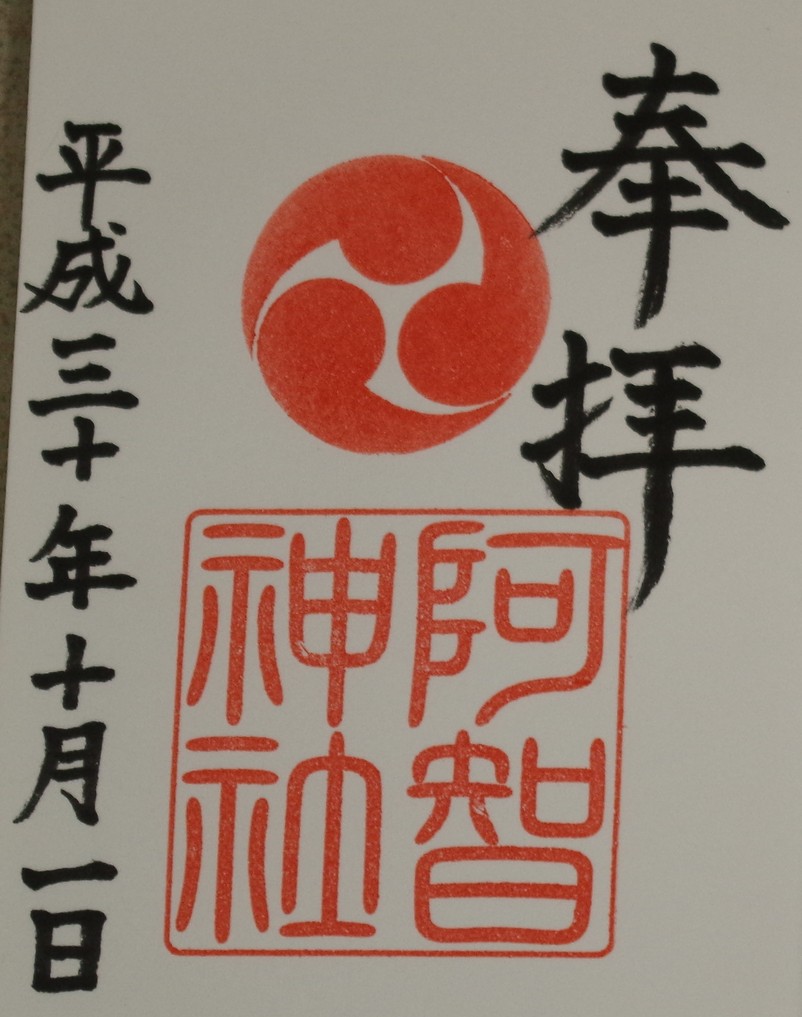 奉拝
阿智
神社
平成三十年十月一日